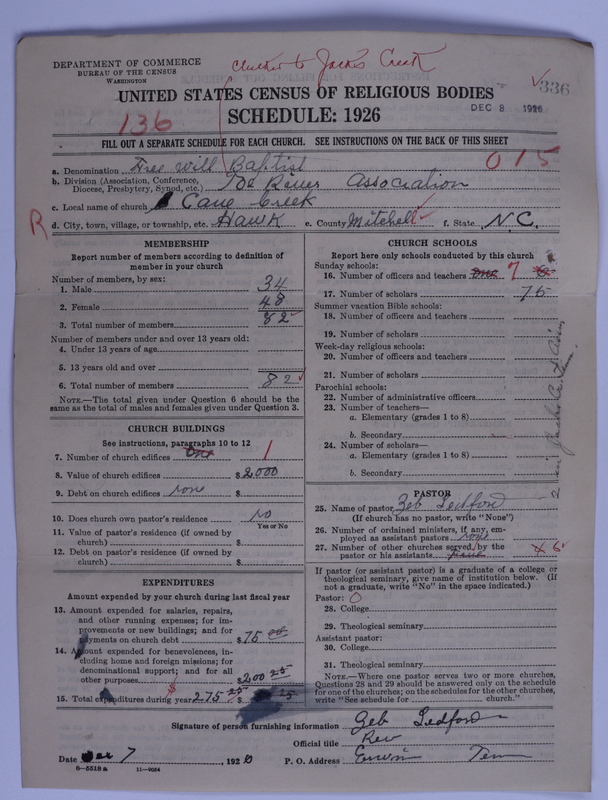 DEPARTMENT OF COMMERCE
BUREAU OF THE CENSUS
WASHINGTON
to Jacks Creek
336
UNITED STATES CENSUS OF RELIGIOUS BODIES
DEC 8 1926
136
SCHEDULE: 1926
FILL OUT A SEPARATE SCHEDULE FOR EACH CHURCH. SEE INSTRUCTIONS ON THE BACK OF THIS SHEET
015
a. Denomination Free Will Baptist
b. Division (Association, Conference, Diocese, Presbytery, Synod, etc.) Association
c. Local name of church Cane Creek
R d. City, town, village, or township, etc. Hawk e. County Mitchell f. State N.C.
MEMBERSHIP
Report number of members according to definition of
member in your church
Number of members, by sex:
1. Male 34
2. Female 48
3. Total number of members 82
Number of members under and over 13 years old:
4. Under 13 years of age
5. 13 years old and over
6. Total number of members 82
NOTE.—The total given under Question 6 should be
same as the total of males and females given under Question 3.
CHURCH BUILDINGS
See instructions, paragraphs 10 to 12
7. Number of church edifices One 1
8. Value of church edifices $2000
9. Debt on church edifices none
10. Does church own pastor's residence no
Yes or No
11. Value of pastor's residence (if owned by
church) $
12. Debt on pastor's residence (if owned by
church) $
EXPENDITURES
Amount expended by your church during last fiscal year
13. Amount expended for salaries, repairs,
and other running expenses; for im-
provements or new buildings; and for
payments on church debt $75 00
14. Amount expended for benevolences, in-
cluding home and foreign missions; for
denominational support; and for all
other purposes $200 25
15. Total expenditures during year 275 25 $ 25
CHURCH SCHOOLS
Report here only schools conducted by this church
Sunday schools:
16. Number of officers and teachers One 7
17. Number of scholars 75
Summer vacation Bible schools:
18. Number of officers and teachers
19. Number of scholars
Week-day religious schools:
20. Number of officers and teachers
21. Number of scholars
Parochial schools:
22. Number of administrative officers
23. Number of teachers—
a. Elementary (grades 1 to 8)
b. Secondary
24. Number of scholars—
a. Elementary (grades 1 to 8)
b. Secondary
PASTOR
25. Name of pastor Zeb Ledford
(If church has no pastor, write "None")
26. Number of ordained ministers, if any, em-
ployed as assistant pastors none
27. Number of other churches served by the
pastor or his assistants
If pastor (or assistant pastor) is a graduate of a college or
theological seminary, give name of institution below. (If
not a graduate, write "No" in the space indicated.)
Pastor: O
28. College
29. Theological seminary
Assistant pastor:
30. College
31. Theological seminary
NOTE.—Where one pastor serves two or more churches,
Questions 28 and 29 should be answered only on the schedule
for one of the churches; on the schedules for the other churches,
write "See schedule for church."
Signature of person furnishing information Zeb Ledford
Official title Rev
Date Dec 7, 1926 P. O. Address Erwin Tenn
6—5518 a 11—9054